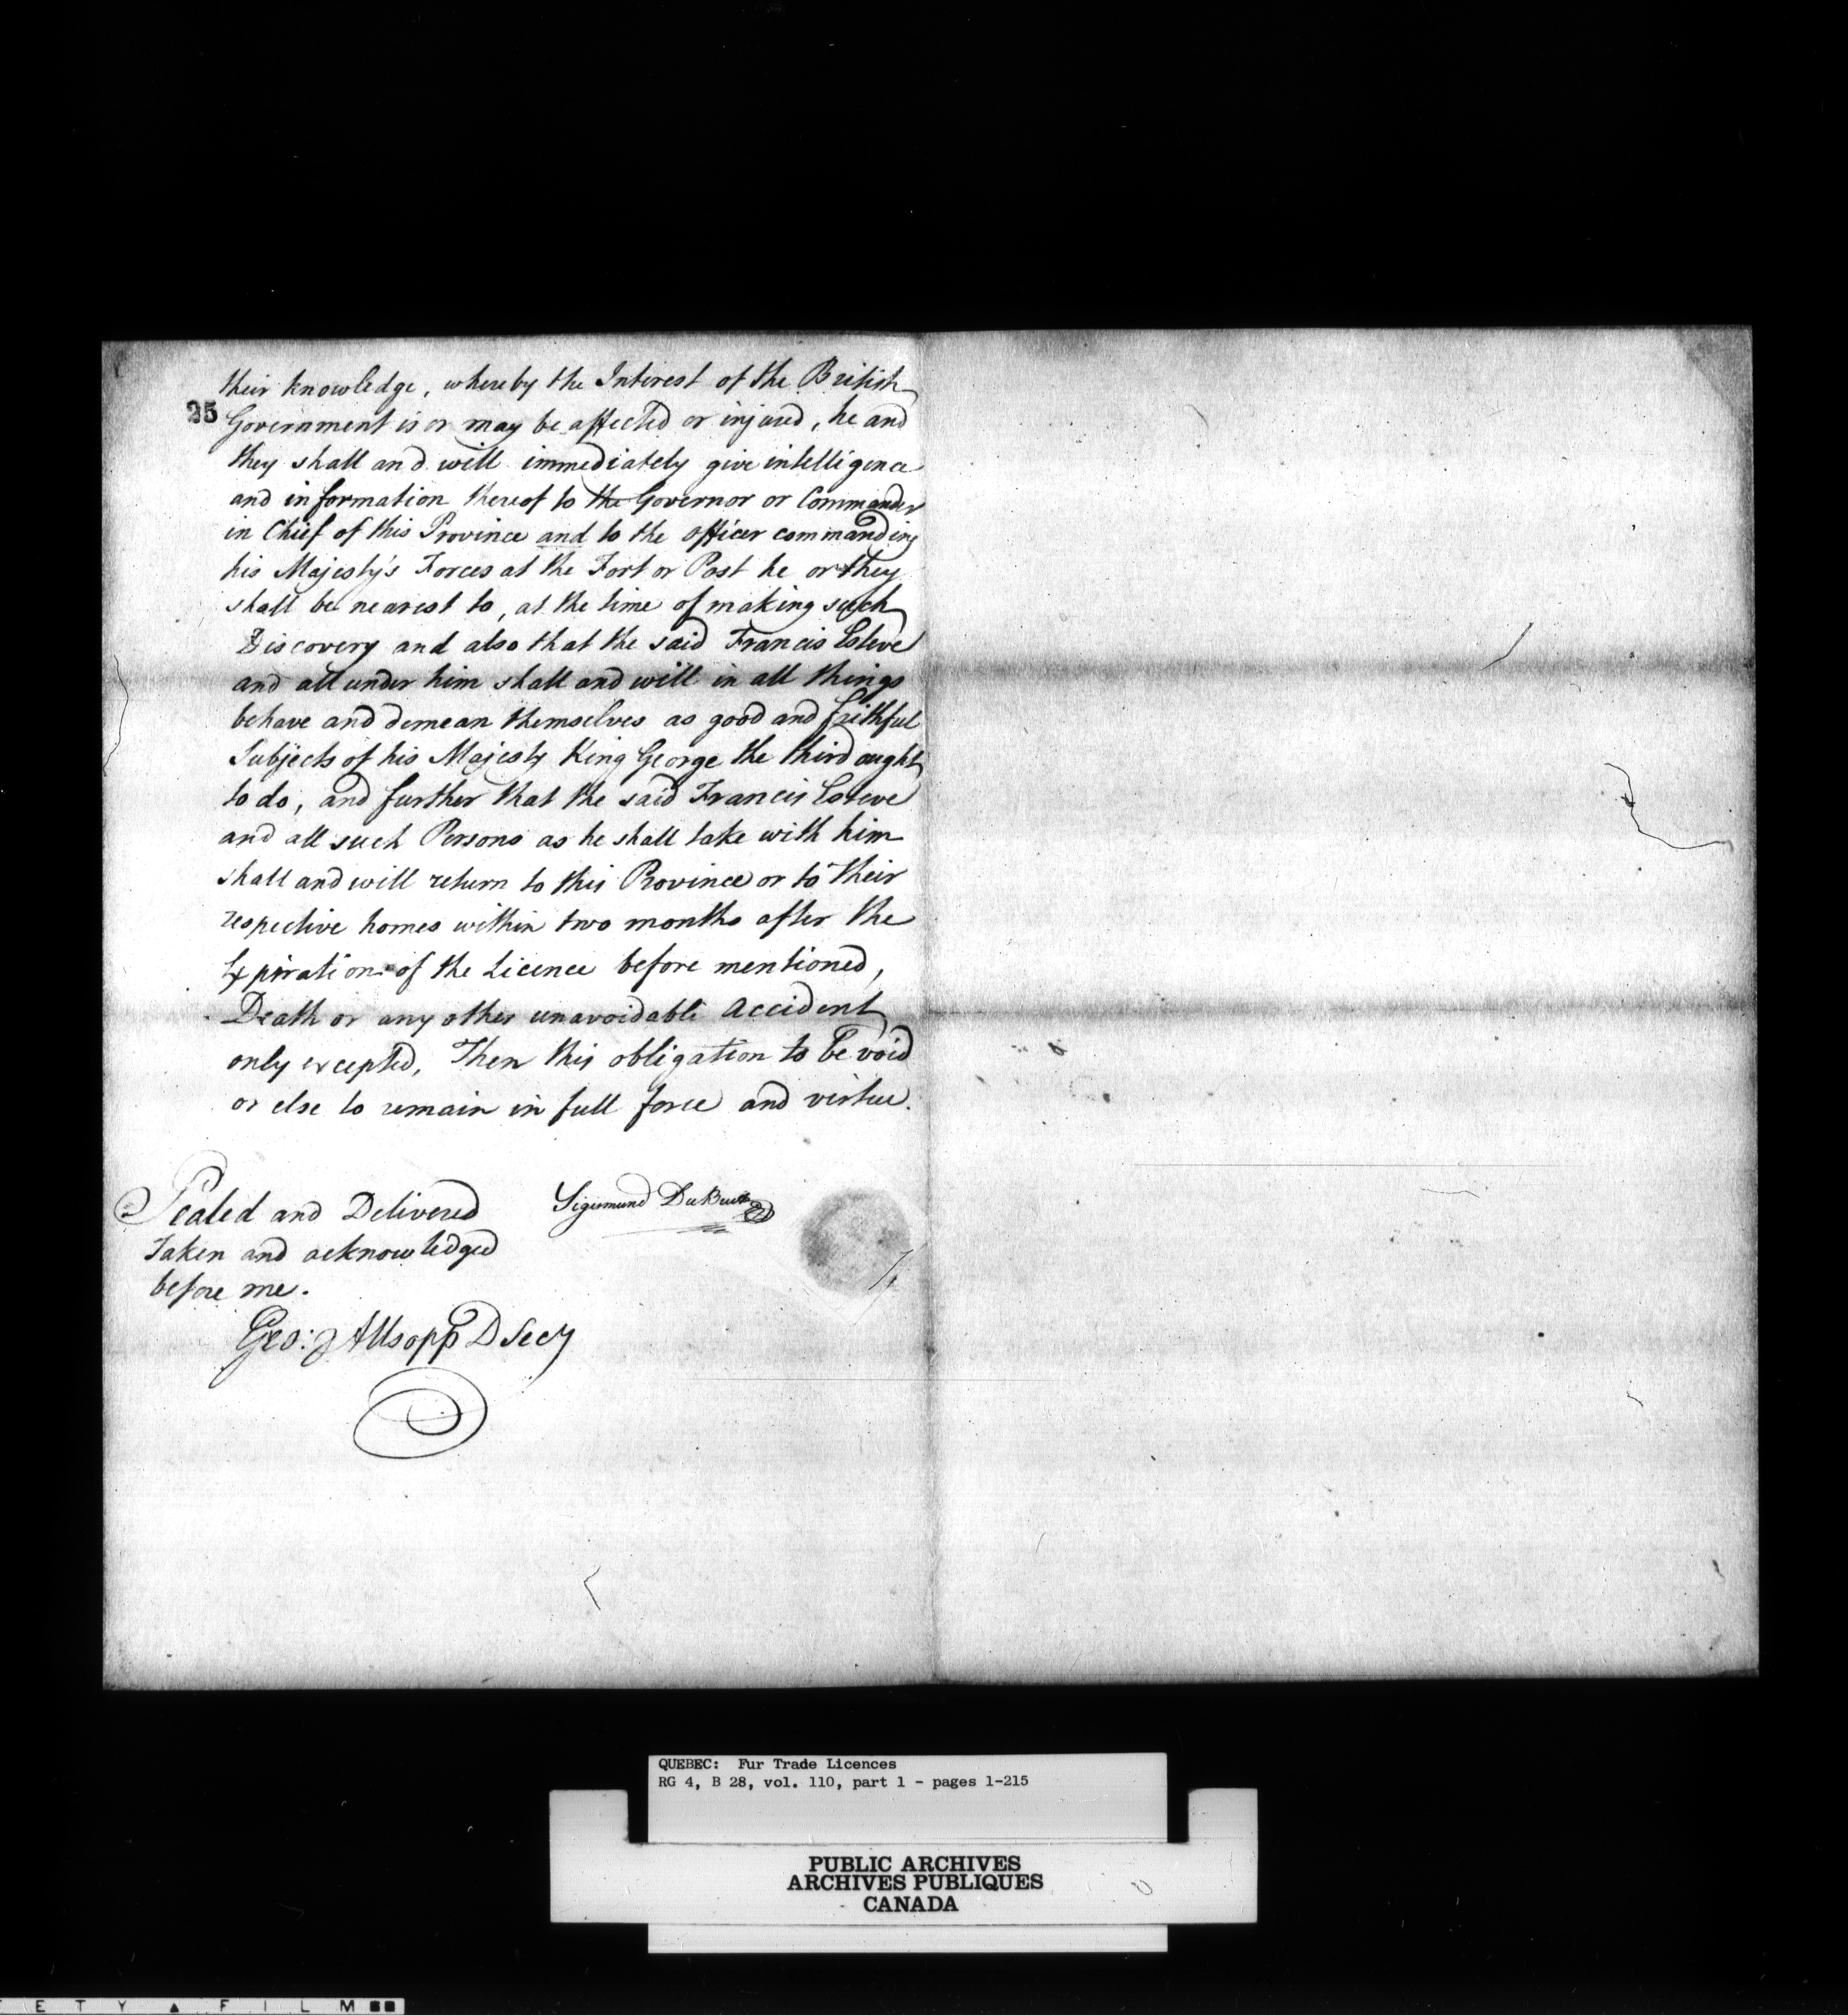 their knowledge, whereby the Interest of the British
25
Government is or may be affected or injured, he and
they shall and will immediately give intelligence
and information thereof to the Governor or Commander
in Chief of this Province and to the officer commanding
his Majesty's Forces at the Fort or Post he or they
shall be nearest to, at the time of making such
Discovery and also that the said Francis Esteve
and all under him shall and will in all things
behave and demean themselves as good and faithful
Subjects of his Majesty King George the third ought
to do, and further that the said Francis Esteve
and all such Persons as he shall take with him
shall and will return to this Province or to their
respective homes within two months after the
Expiration of the Licence before mentioned,
Death or any other unavoidable accident
only excepted, Then this obligation to be void
or else to remain in full force and virtue.
Sealed and Delivered
Sigismund
Taken and acknowledged
before me.
Geo: Allsopp D Secy
QUEBEC: Fur Trade Licences
RG 4, B 28, vol. 110, part 1 - pages 1-215
PUBLIC ARCHIVES
ARCHIVES PUBLIQUES
CANADA
E T Y ▲ F I L M